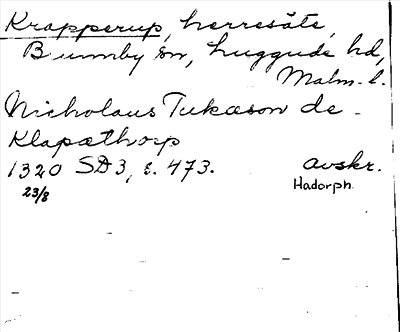 Krapperup, herresäte,
Brunnby sn, Luggude hd,
Malm. l.
Nicholaus Tukæson de
Klapæthorp
1320 SD 3, s. 473. avskr.
23/8 Hadorph.